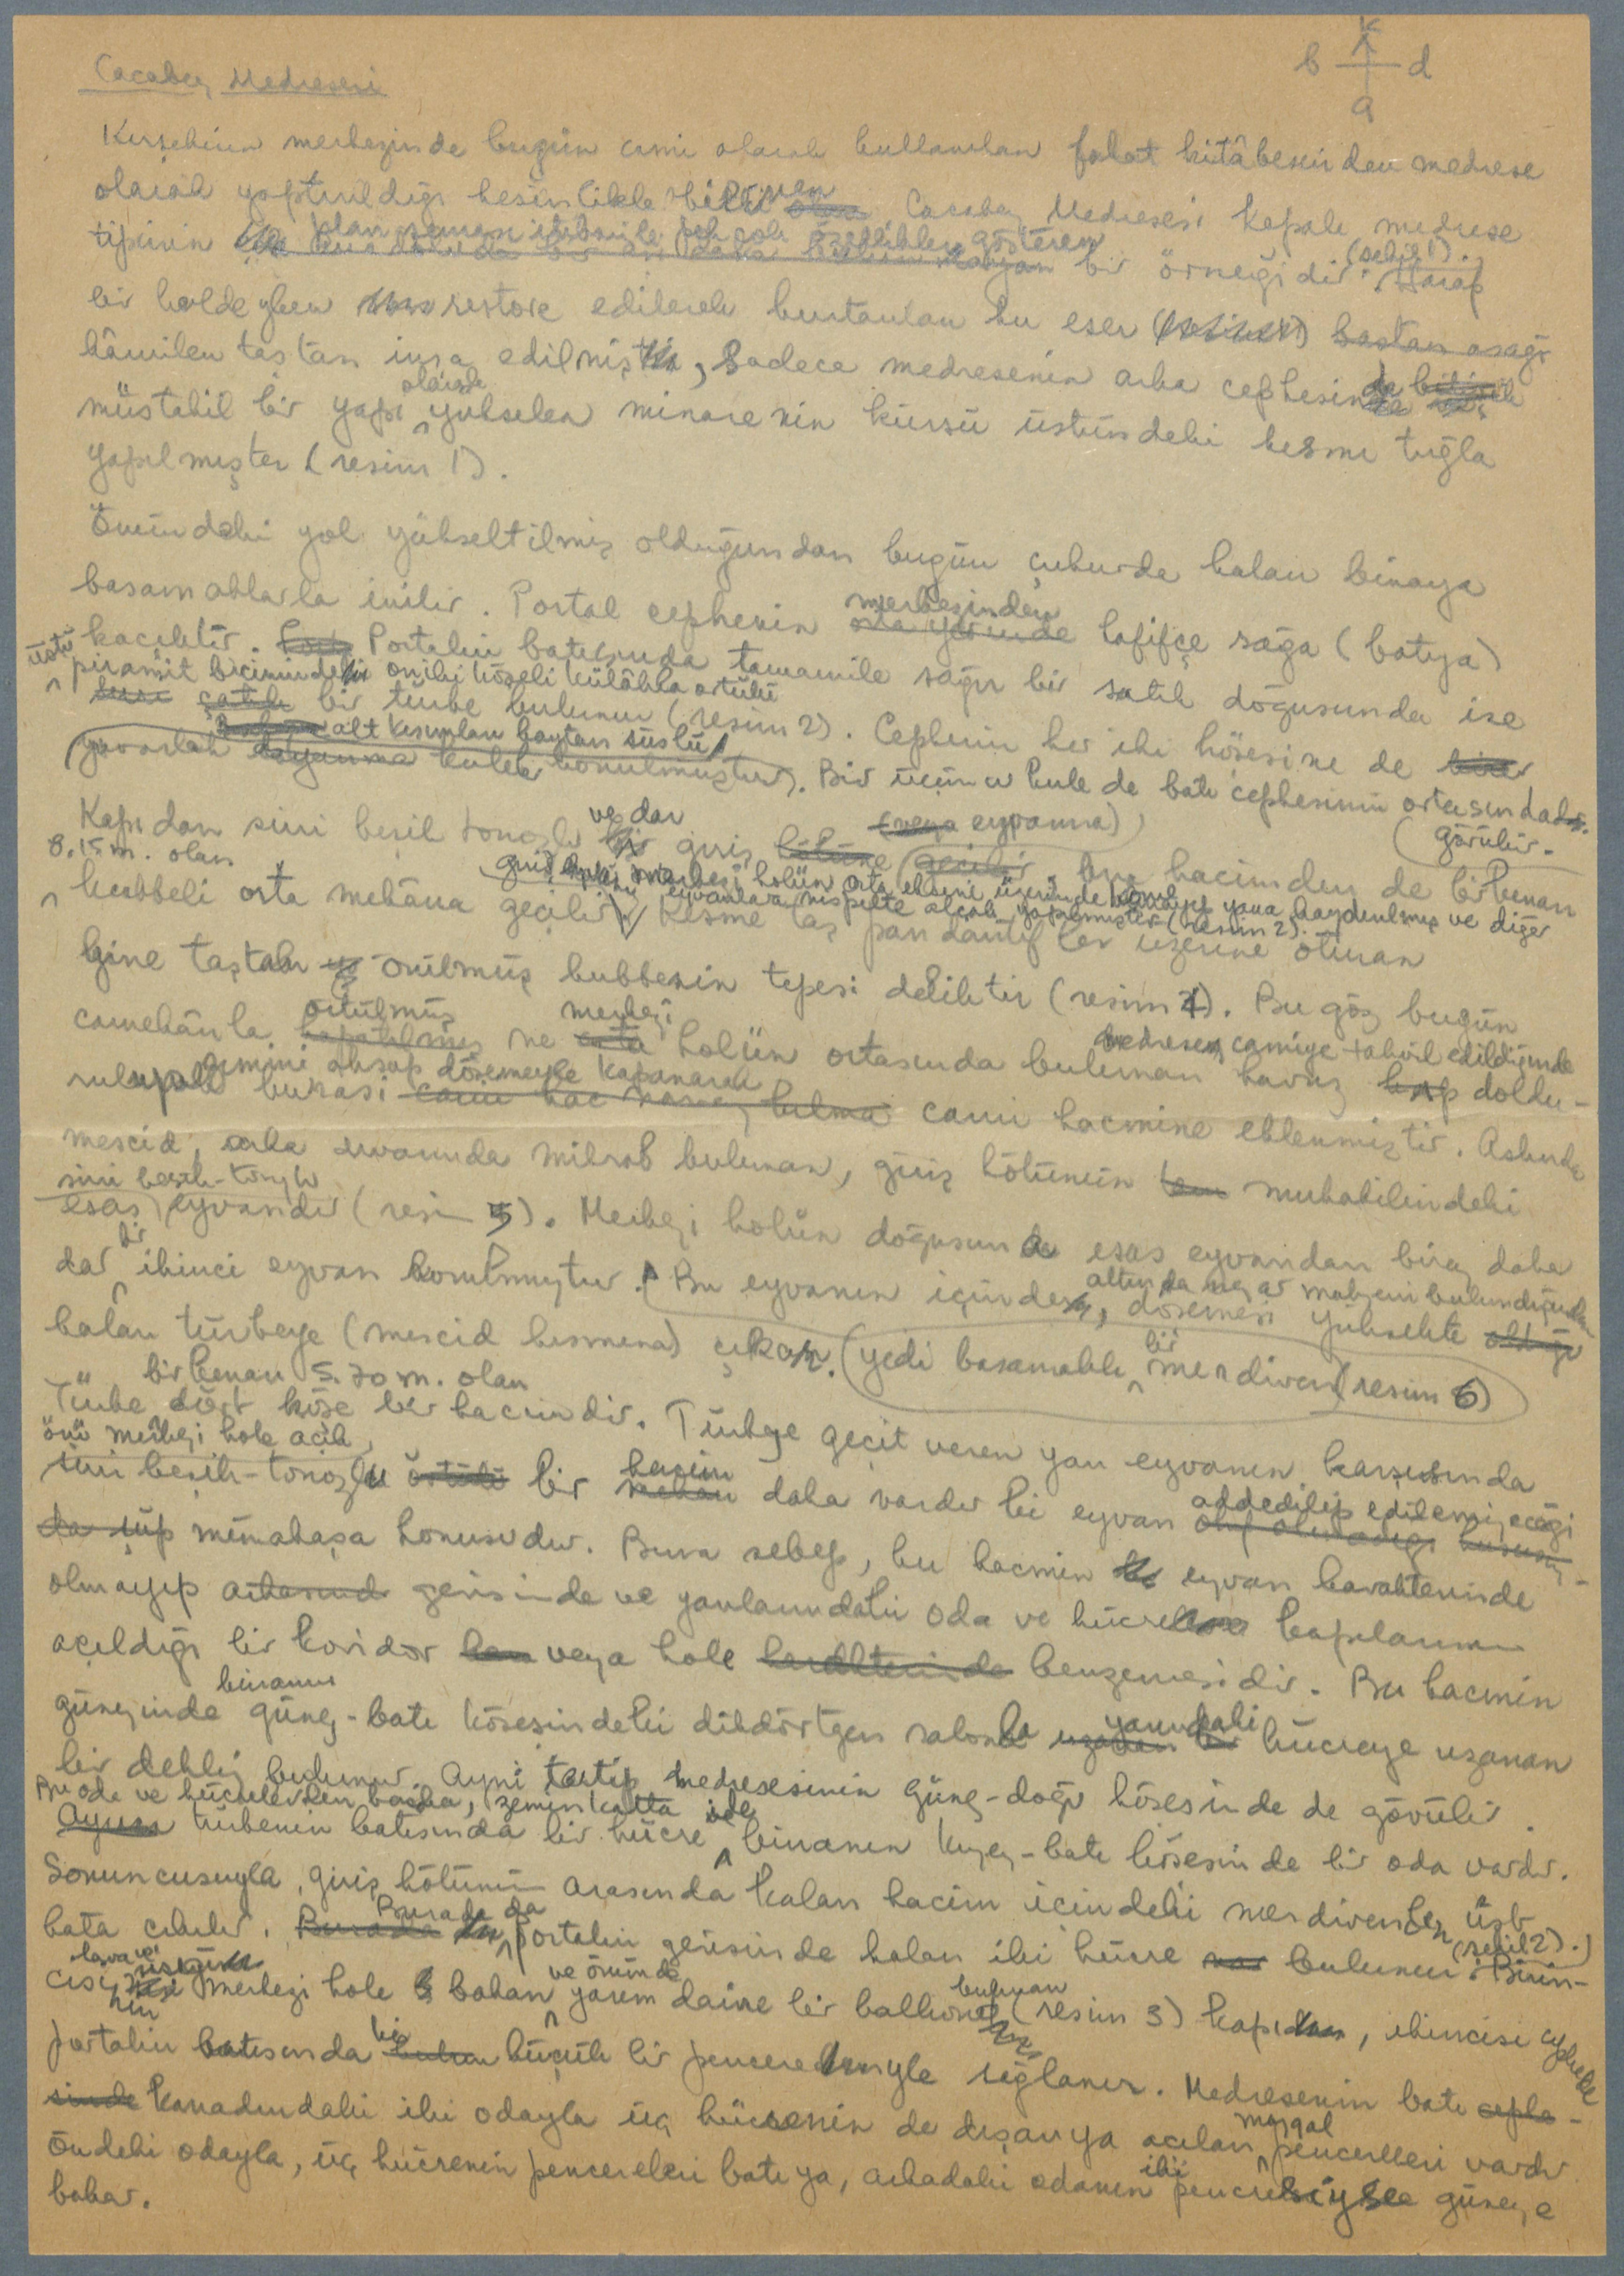 K
b d
a
Cacabey Medresesi
Kırşehirin merkezinde bugün cami olarak kullanılan fakat kitâbesinden medrese
olarak yaptırıldığı kesinlikle bilinen Cacabey Medresesi kapalı medrese
tipinin plan şeması itibarile pek çok özellikler gösteren bir örneğidir (şekil 1). Harap
bir haldeyken restore edilerek kurtarılan bu eser baştan aşağı
kâmilen taştan inşa edilmiş, sadece medresenin arka cephesinde
müstakil bir yapı olarak yükselen minarenin kürsü üstündeki kısmı tuğla
yapılmıştır (resim 1).
Önündeki yol yükseltilmiş olduğundan bugün çukurda kalan binaya
basamaklarla inilir. Portal cephenin merkezinden hafifçe sağa (batıya)
kaçıktır. Portalin batısında tamamile sağır bir satıh doğusunda ise
üstü piramit biçimindeki oniki köşeli külâhla örtülü
bir türbe bulunur (resim 2). Cephenin her iki köşesine de birer
alt kısımları baştan süslü
yuvarlak kule konulmuştur. Bir üçüncü kule de batı cephesinin ortasında
görülür.
Kapıdan sivri beşik tonozlu ve dar giriş (veya eyvanına) geçilir. Bu hacimden de bir kenarı
8.15 m. olan
giriş merkezi holün orta ekseni üzerinde yana kaydırılmış ve diğer
kubbeli orta mekâna geçilir. Kesme taş pandantifler üzerine oturan
eyvanlara nispetle alçak yapılmıştır (resim 2).
gine taştan örülmüş kubbenin tepesi deliktir (resim 4). Bu göz bugün
camekânla örtülmüş ve merkezi holün ortasında bulunan havuz doldu-
medrese camiye tahvil edildiğinde
rularak zemini ahşap döşemeyle kapanarak burası cami hacmine eklenmiştir. Aslında
mescid, arka duvarında mihrab bulunan, giriş bölümünün mukabilindeki
sivri beşik-tonozlu
esas eyvandır (resim 5). Merkezi holün doğusunda esas eyvandan biraz daha
dar bir ikinci eyvan konulmuştur. Bu eyvanın içinden, döşemesi yüksekte
altında mezar mahzeni bulunduğundan
kalan türbeye (mescid kısmına) çıkan (yedi basamaklı bir merdiven) (resim 6)
bir kenarı 5.70 m. olan
Türbe dört köşe bir hacimdir. Türbeye geçit veren yan eyvanın karşısında
önü merkezi hole açık,
sivri beşik-tonozlu bir hacim daha vardır ki eyvan addedilip edilemiyeceği
münakaşa konusudur. Buna sebep, bu hacmin eyvan karakterinde
olmayıp gerisinde ve yanlarındaki oda ve hücre kapılarının
açıldığı bir koridor veya hole benzemesidir. Bu hacmin
güneyinde binanın güney-batı köşesindeki dikdörtgen salonla yanındaki hücreye uzanan
bir dehliz bulunur. Aynı tertip medresesinin güney-doğu köşesinde de görülür.
Bu oda ve hücrelerden başka, zemin katta
türbenin batısında bir hücre ile binanın kuzey-batı köşesinde bir oda vardır.
Sonuncusuyla, giriş bölümü arasında kalan hacim içindeki merdivenden üst
kata çıkılır. Burada da portalin gerisinde kalan iki hücre bulunur (şekil 2). Birin-
cisi merkezi hole bakan ve önünde yarım daire bir balkonu bulunan (resim 3) kapıdan, ikincisi cephede
portalin batısında bir küçük bir pencereyle ışıklanır. Medresenin batı
kanadındaki iki odayla üç hücrenin de dışarıya açılan mazgal pencereleri vardır
Öndeki odayla, üç hücrenin pencereleri batıya, arkadaki odanın iki penceresiyse güneye
bakar.